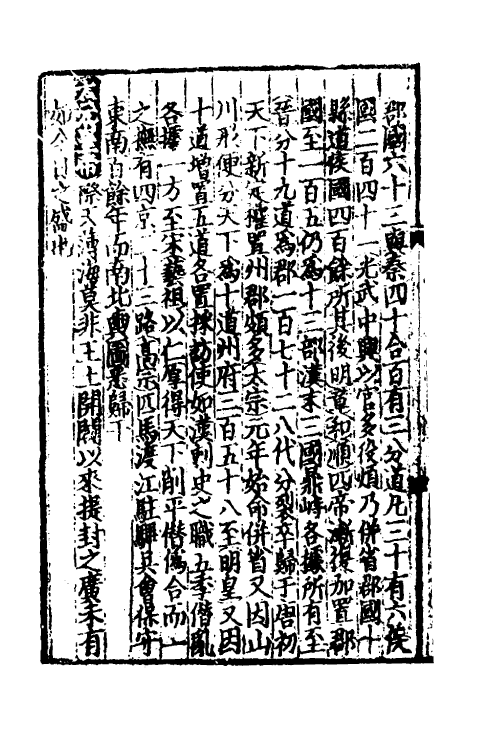 郡國六十三與秦四十合百有三分道凡三十有六侯
國二百四十一光武中興以官多役煩乃併省郡國十
縣道侯國四百餘所其後明章和順四帝漸復加置郡
國至一百五仍為十三部漢末三國鼎峙各據所有至
晉分十九道為郡一百七十二八代分裂卒歸于唐初
天下新定權置州郡頗多太宗元年始命併省又因山
川形便分天下為十道州府三百五十八至明皇又因
十道增置五道各置採訪使如漢刺史之職五季僭亂
各據一方至宋藝祖以仁厚得天下削平僭偽合而一
之撫有四京二十三路高宗匹馬渡江駐驆吳會保守
東南百餘年而南北輿圖悉歸于
際天薄海莫非王土開闢以來提封之廣未有
如今日之盛也